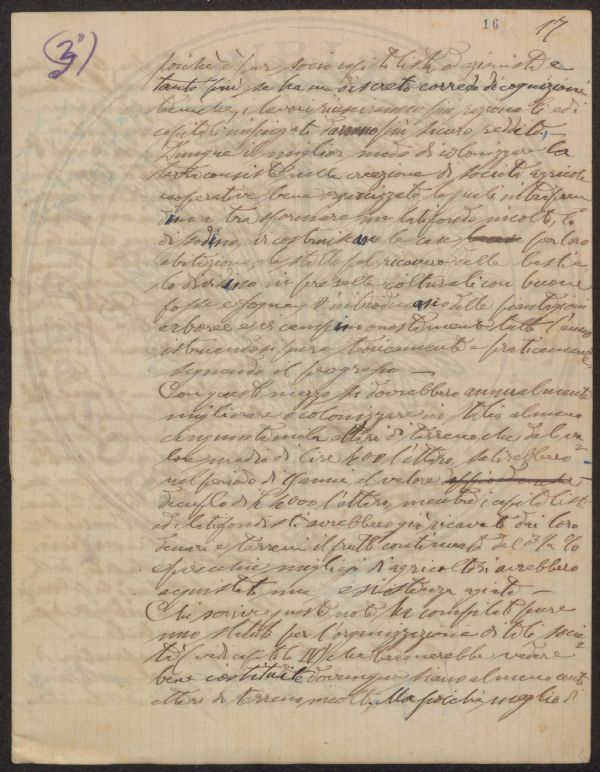 16
17
(3°)
poichè è pur socio capitalista ed azionista e
tanto più se ha un discreto corredo di cognizioni
tecniche, i lavori riusciranno più razionali ed i
capitali impiegati daranno più sicuro reddito,
Dunque il miglior modo di colonizzare la
terra consiste nella creazione di società agricole
cooperative bene organizzate le quali
a trasformare un latifondo incolto, lo
dissodino, vi costruiscano le case per loro
abitazione e le stalle pel ricovero delle bestie
lo dividino in preselle colturali con buone
fosse e fogne, v'introducano delle piantagioni
arboree e vi campino onestamente tutto l'anno
istruendosi pure teoricamente e praticamente,
seguendo il progresso —
Con questo mezzo si dovrebbero annualmente
migliorare e colonizzare in Italia almeno
cinquantamila ettari di terreno che dal va=
lore medio di lire 400 l'ettaro, salirebbero
nel periodo di anni al valore
di L 4000 l'ettaro, mentre i capitalisti
ed i latifondisti avrebbero già ricavato dai loro
denari e terreni il frutto continuato del 3½ %
e parecchie migliaja d'agricoltori avrebbero
acquistato una esistenza agiata —
Chi scrive queste note ha compilato pure
uno statuto per l'organizzazione di tale socie=
tà (vedi capitolo IV) che bramerebbe vedere
bene costituite dovunque siano almeno cento
ettari di terreno incolto, Ma poichè meglio di